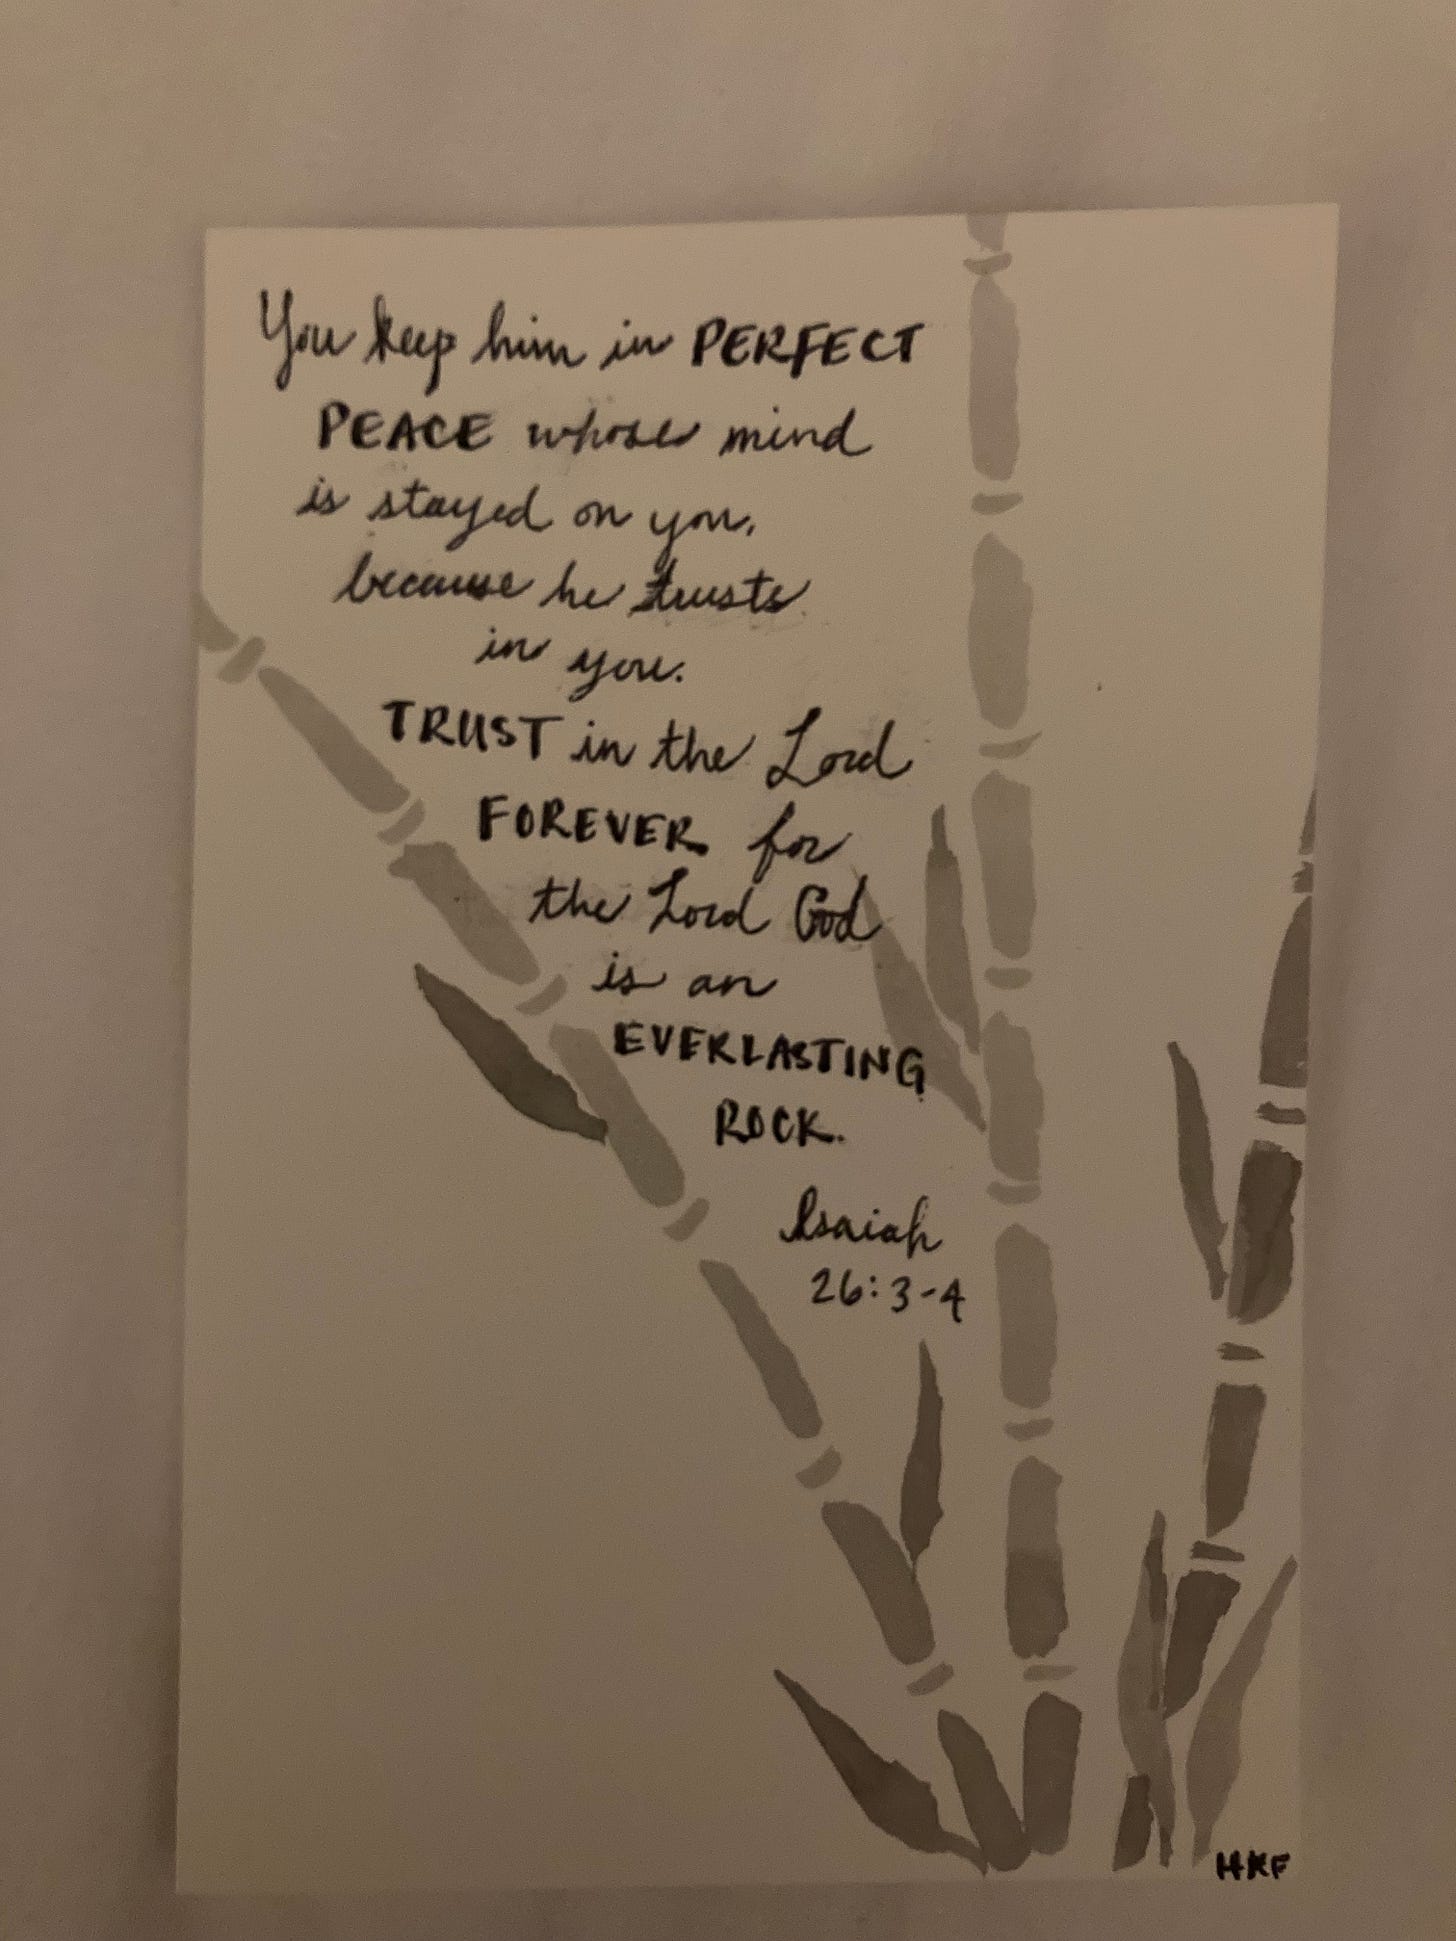 You keep him in PERFECT
PEACE whose mind
is stayed on you,
because he trusts
in you.
TRUST in the Lord
FOREVER for
the Lord God
is an
EVERLASTING
ROCK.
Isaiah
26:3-4
HKF